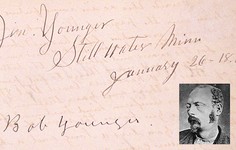 Jim. Younger
Still Water Minn
January 26-18
Bob Younger.